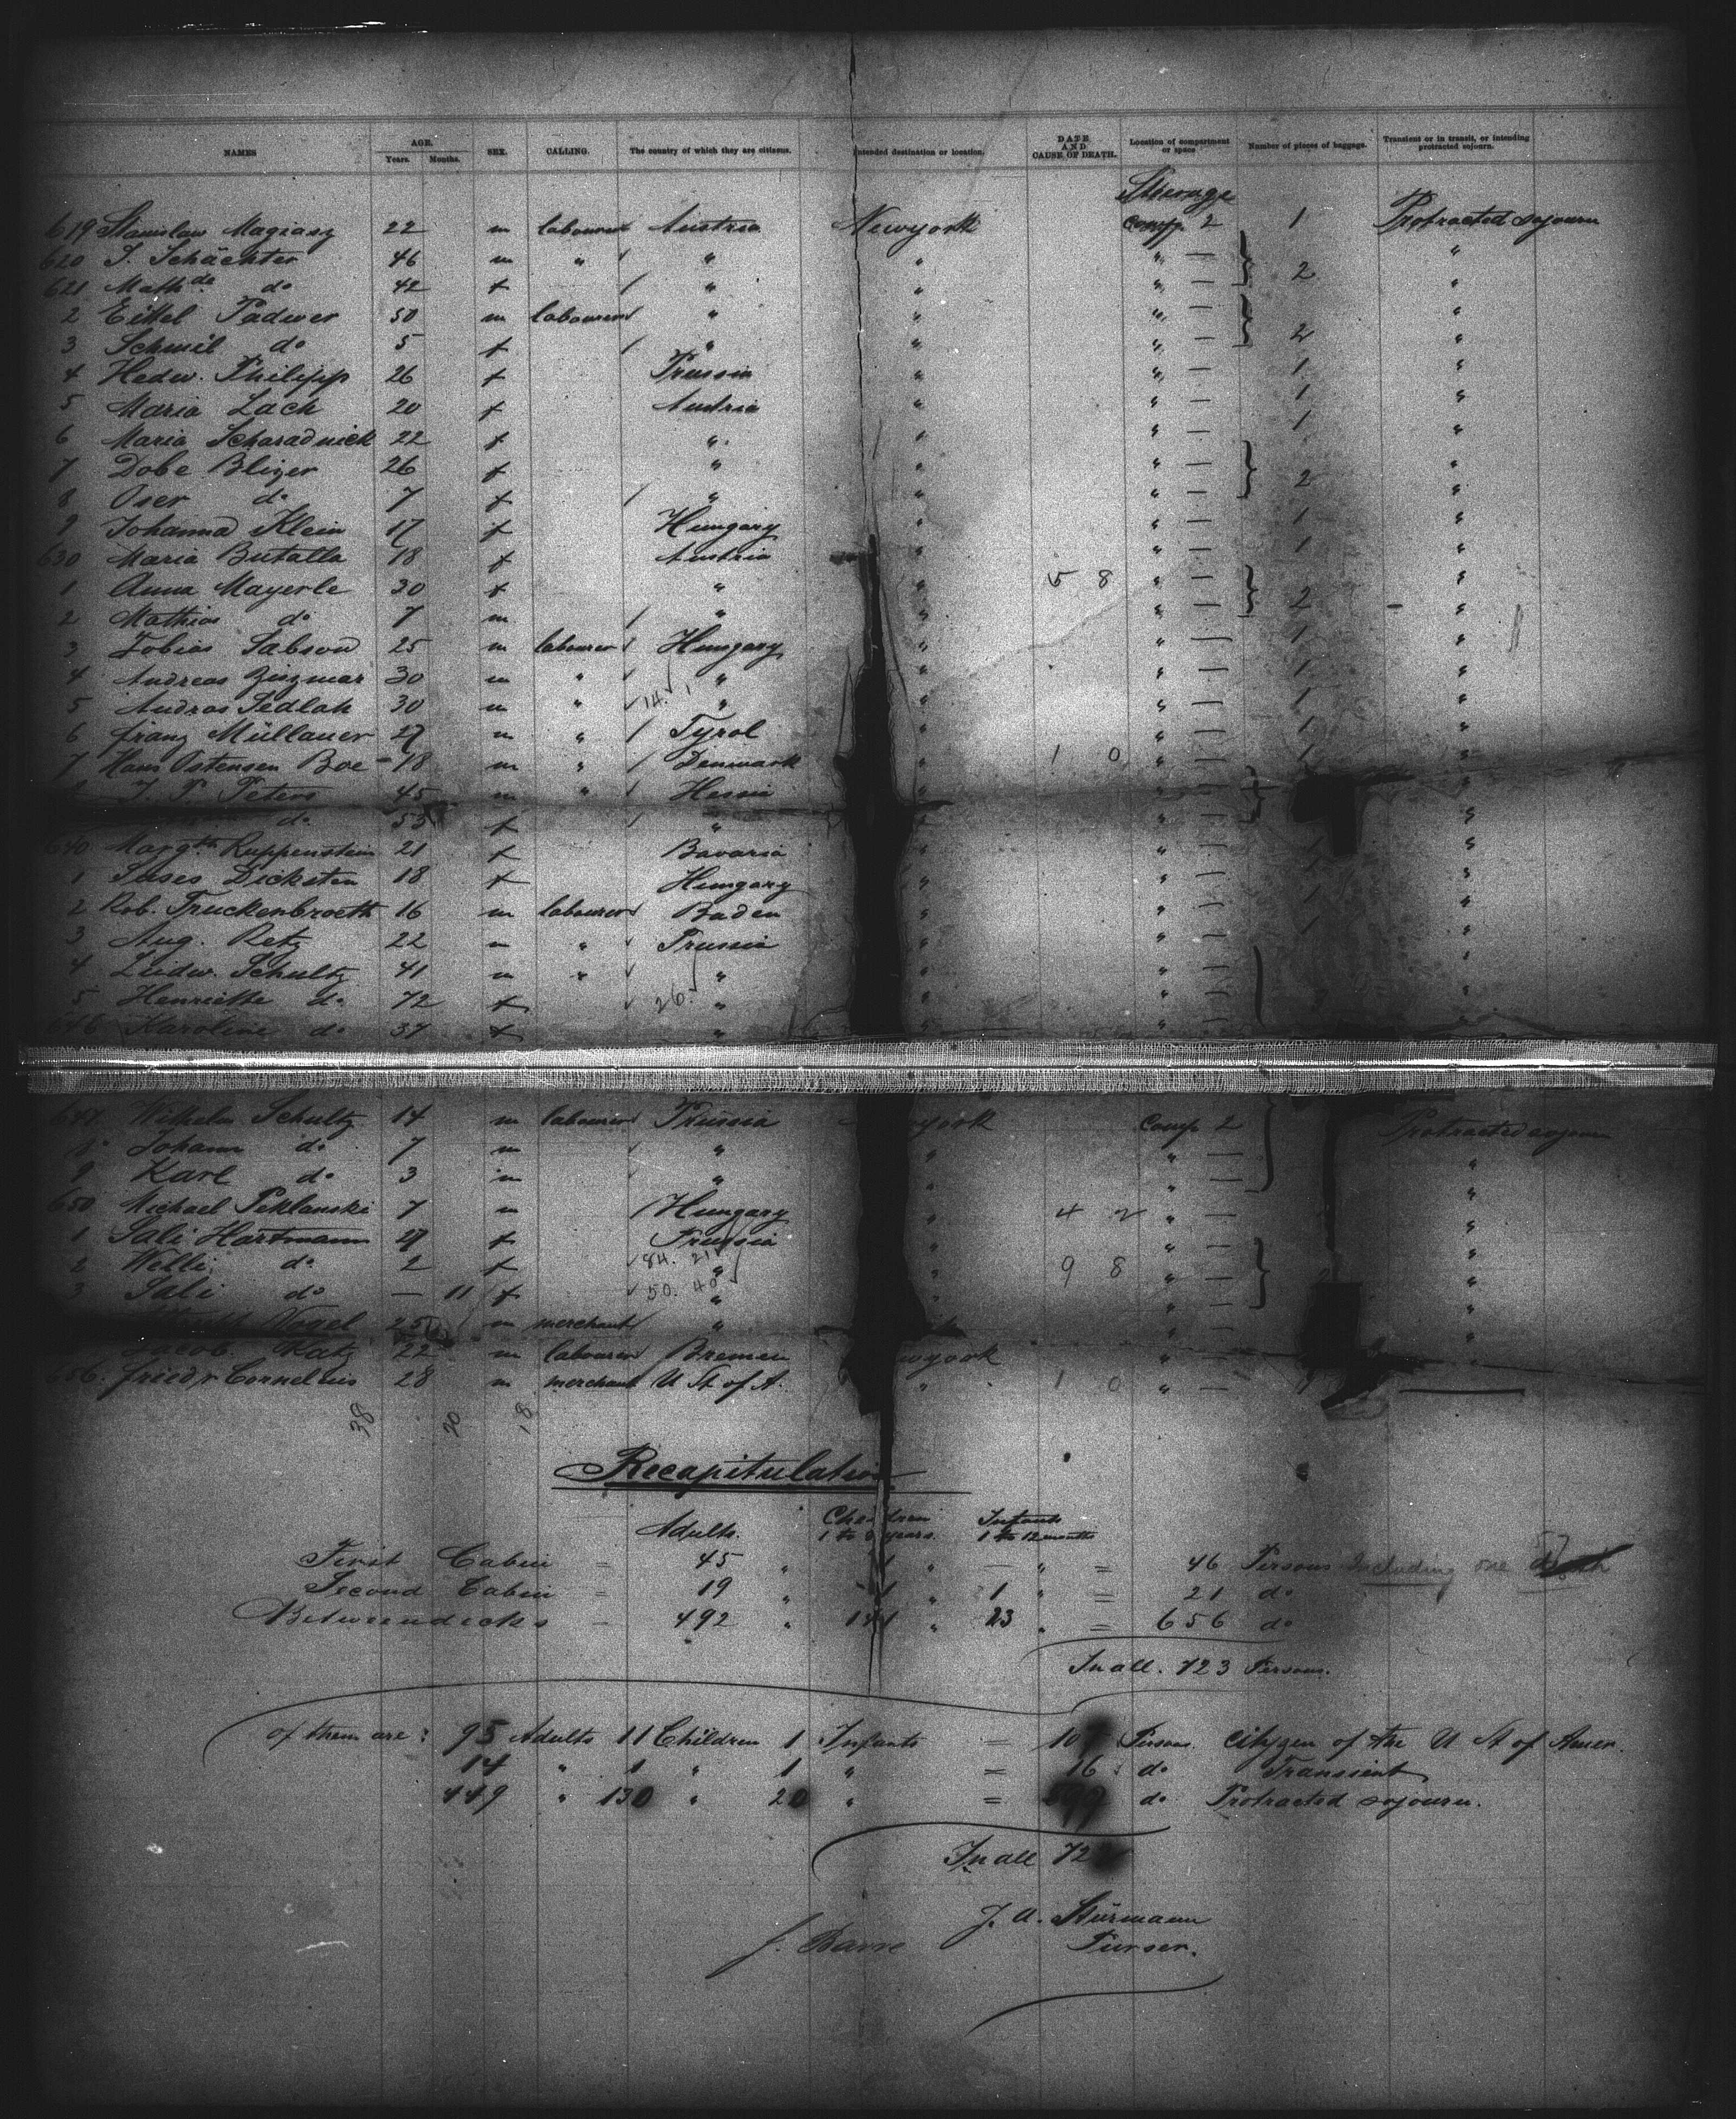 NAMES AGE. Years. Months. SEX. CALLING. The country of which they are citizens. Intended destination or location. DATE AND CAUSE OF DEATH. Location of compartment or space Number of pieces of baggage. Transient or in transit, or intending protracted sojourn.
Steerage
619 Stanislaw Magiasz 22 m labourer Austria Newyork Comp. 2 1 Protracted sojourn
620 S. Schächter 46 m " " " " — 2 "
621 Mathde do 42 f " " " — "
2 Eittel Padwer 50 m labourer " " " — "
3 Schmil do 5 f " " " — 2 "
4 Hedw. Philipp 26 f Prussia " " — 1 "
5 Maria Lach 20 f Austria " " — 1 "
6 Maria Scharadnick 22 f " " " — 1 "
7 Dobe Blizer 26 f " " " — 2 "
8 Oser do 7 f " " " — "
9 Johanna Klein 17 f Hungary " " — 1 "
630 Maria Butalla 18 f Austria " " — 1 "
1 Anna Mayerle 30 f " " 5 8 " — 2 "
2 Mathias do 7 m " " " — "
3 Tobias Sabsow 25 m labourer Hungary " " — 1 "
4 Andreas Zinzmar 30 m " " " " — 1 "
5 Andras Sedlak 30 m " 14. " " " — 1 "
6 Franz Müllauer 27 m " Tyrol " " — 1 "
7 Hans Ostensen Boe 18 m " Denmark " 1 0 " — 1 "
J. P. Peters 45 m " Hessia " " — "
do. 53 f " " " — "
640 Margth Ruppenstein 21 f Bavaria " " — "
1 Sases Dicksten 18 f Hungary " " — "
2 Rob. Truckenbroth 16 m labourer Baden " " — 1 "
3 Aug. Retz 22 m " Prussia " " — 1 "
4 Ludw. Schultz 41 m " " " " — "
5 Henriette do 72 f 26. " " " — "
646 Karoline do 37 f " " " — "
647 Wilhelm Schultz 14 m labourer Prussia york Comp 2 Protracted sojourn
8 Johann do 7 m " " " — "
9 Karl do 3 m " " " — "
650 Michael Peklanski 7 m Hungary " 4 2 " — "
1 Sali Hartmann 27 f Prussia " " — "
2 Welli do 2 f 84. 21 " " 9 8 " — "
3 Sali do — 11 f 50. 40 " " " — "
Vogel 25 m merchant " " — "
Jacob Katz 22 m labourer Bremen wyork " — "
656. Friedr Cornelius 28 m merchant U St of A. " 1 0 " —
38 20 18
Recapitulation
Adults. Children 1 to 8 years. Infants 1 to 12 months
First Cabin = 45 " 1 " — " = 46 Persons including one death
Second Cabin = 19 " 1 " 1 " = 21 do
Betweendecks — 492 " 141 " 23 " = 656 do
In all. 723 Persons.
of them are: 95 Adults 11 Children 1 Infants = 107 Persons Citizen of the U St of Amer.
14 " 1 " 1 " = 16 do Transient
449 " 130 " 20 " = do Protracted sojourn.
In all 72
J. A. Stürmann
Purser.